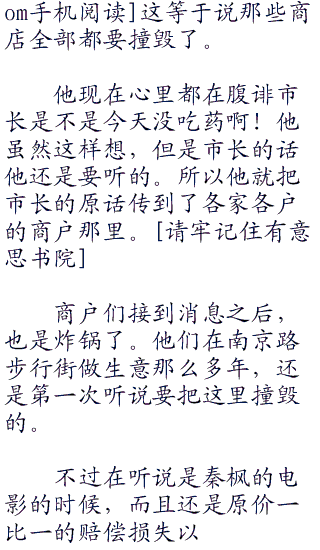 om手机阅读]这等于说那些商
店全部都要撞毁了。
他现在心里都在腹诽市
长是不是今天没吃药啊！他
虽然这样想，但是市长的话
他还是要听的。所以他就把
市长的原话传到了各家各户
的商户那里。[请牢记住有意
思书院]
商户们接到消息之后，
也是炸锅了。他们在南京路
步行街做生意那么多年，还
是第一次听说要把这里撞毁
的。
不过在听说是秦枫的电
影的时候，而且还是原价一
比一的赔偿损失以